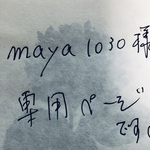 maya1030様
専用ページ
です